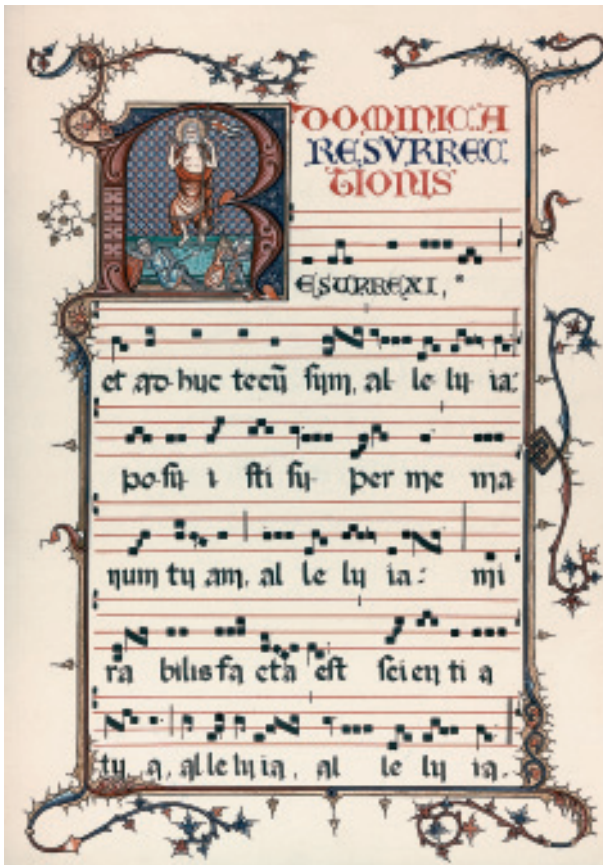 DOMINICA
RESVRREC
TIONIS
RESURREXI, *
et ad huc tecū sum, al le lu ia:
po su i sti su per me ma
num tu am, al le lu ia: mi
ra bilis fa cta est sci en ti a
tu a, al le lu ia, al le lu ia.